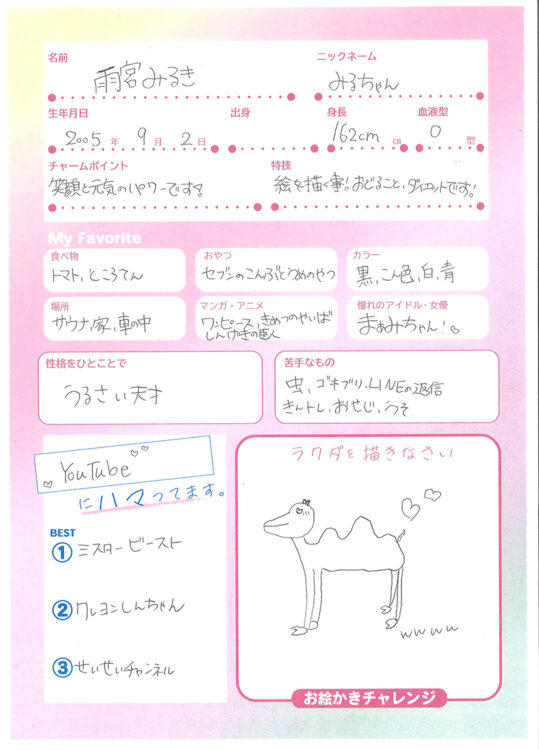 名前
雨宮みるき
ニックネーム
みるちゃん
生年月日
2005年 9月 2日
出身
身長
162cm cm
血液型
O 型
チャームポイント
笑顔と元気のパワーです?
特技
絵を描く事! おどること、ダイエットです!
My Favorite
食べ物
トマト、ところてん
おやつ
セブンのこんぶとうめのやつ
カラー
黒、こん色、白、青
場所
サウナ、家、車の中
マンガ・アニメ
ワンピース、きめつのやいば
しんげきの巨人
憧れのアイドル・女優
まぁみちゃん!
性格をひとことで
うるさい天才
苦手なもの
虫、ゴキブリ、LINEの返信
きんトレ、おせじ、うそ
YouTube
にハマってます。
BEST
① ミスタービースト
② クレヨンしんちゃん
③ せいせいチャンネル
ラクダを描きなさい
wwww
お絵かきチャレンジ